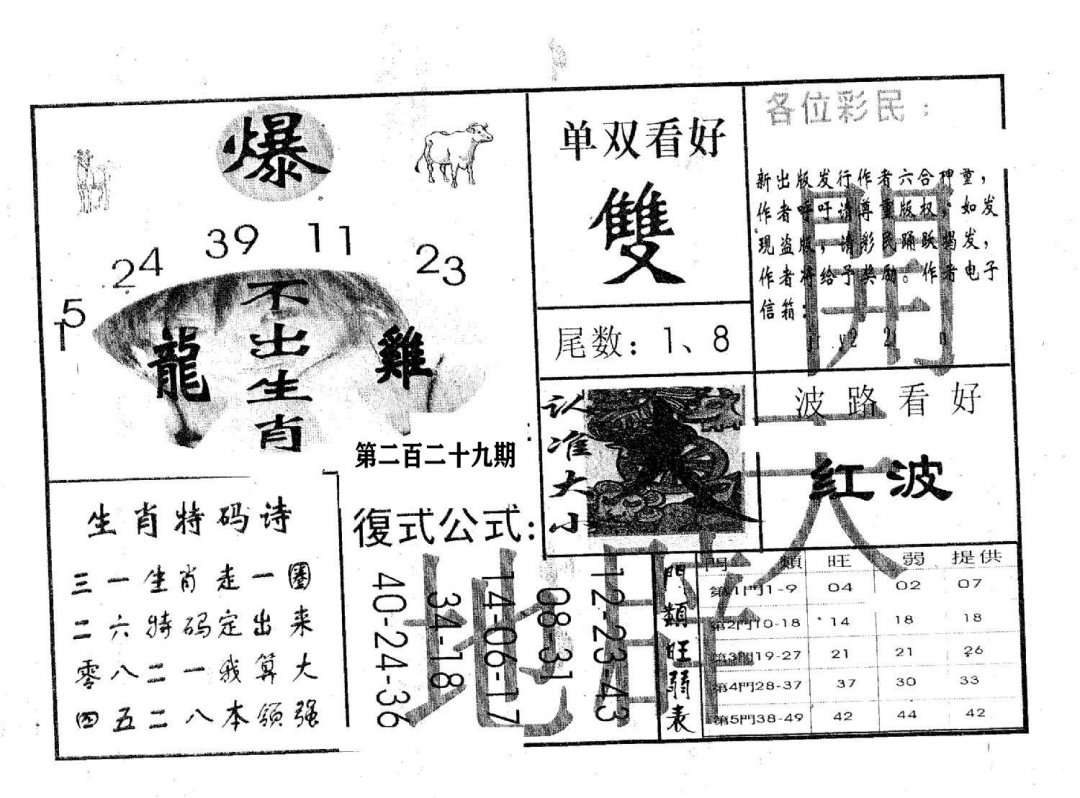 爆
24 39 11 23
15
不出生肖
龍 雞
第二百二十九期
单双看好
雙
尾数：1、8
认准大小
各位彩民：
新出版发行作者六合神童，
作者呼吁请尊重版权，如发
现盗版，请彩民踊跃揭发，
作者将给予奖励。作者电子
信箱：
波路看好
红波
生肖特码诗
三一生肖走一圈
二六特码定出来
零八二一我算大
四五二八本领强
復式公式：
12-23-43
08-31
14-06-17
34-18
40-24-36
門類旺弱表
門類 旺 弱 提供
第1門1-9 04 02 07
第2門10-18 14 18 18
第3門19-27 21 21 26
第4門28-37 37 30 33
第5門38-49 42 44 42
開天地